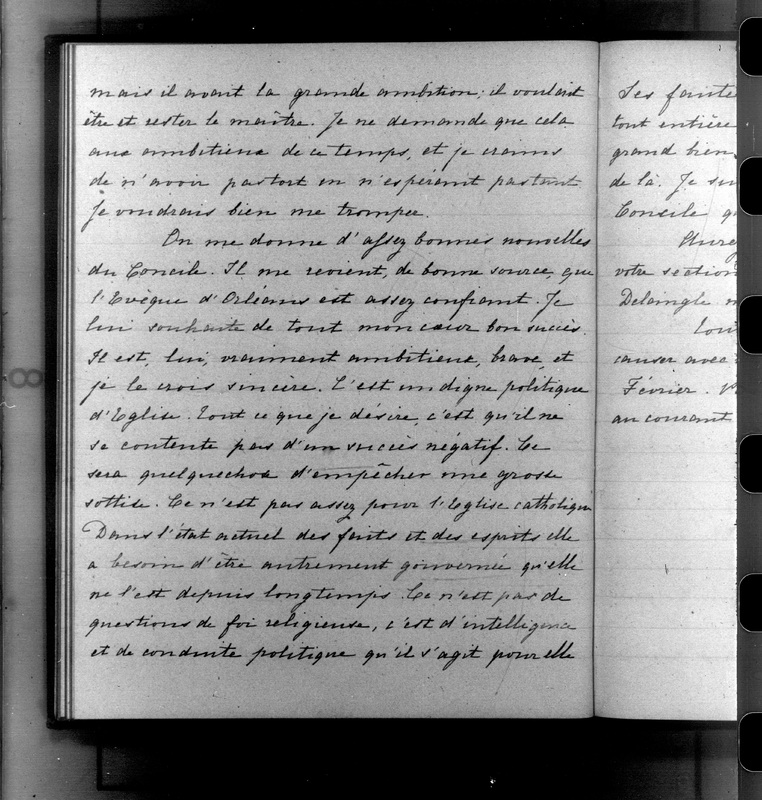 mais il avait la grande ambition; il voulait
être et rester le maître. Je ne demande que cela
aux ambitieux de ce temps, et je crains
de n'avoir pas tort en n'espérant pas tant
Je voudrais bien me tromper.
On me donne d'assez bonnes nouvelles
du Concile. Il me revient, de bonne source, que
l'Evêque d'Orléans est assez confiant. Je
lui souhaite de tout mon cœur bon succès.
Il est, lui, vraiment ambitieux, brave, et
je le crois sincère. C'est un digne politique
d'Eglise. Tout ce que je désire, c'est qu'il ne
se contente pas d'un succès négatif. Ce
sera quelquechose d'empêcher une grosse
sottise. Ce n'est pas assez pour l'Eglise catholique
Dans l'état actuel des faits et des esprits elle
a besoin d'être autrement gouvernée qu'elle
ne l'est depuis longtemps. Ce n'est pas de
questions de foi religieuse, c'est d'intelligence
et de conduite politique qu'il s'agit pour elle
Ses faute
tout entière
grand bien
de là. Je
Concile
votre section
Delangle
causer avec
Février.
au courant